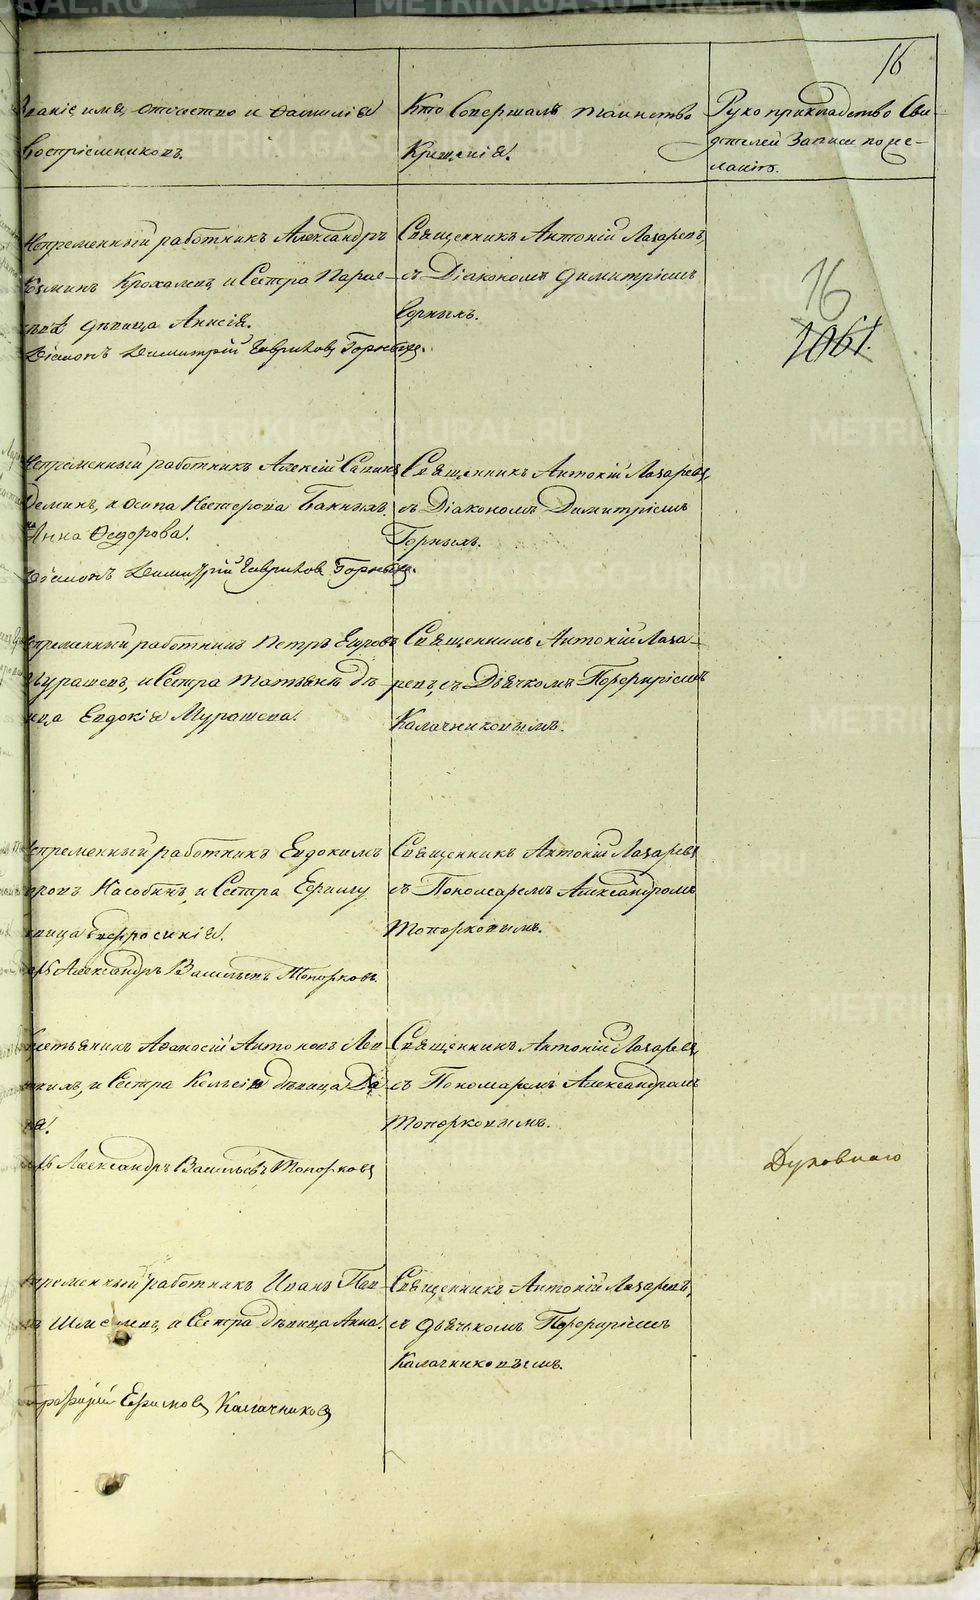 16
Званіе имя, отчество и фамилія
Воспріемниковъ.
Кто Совершалъ таинство
Крещенія.
Рукоприкладство Сви-
дѣтелей записи по же-
ланію.
Непременный работникъ Александръ
Козминъ Крохалевъ, и Сестра Парас-
дѣвица Анисія.
Діаконъ Димитрій Гавриловъ Горныхъ.
Священникъ Антоній Лазаревъ,
съ Діакономъ Димитріемъ
Горныхъ.
16
1061.
Непременный работникъ Алексій Савинъ
Деминъ, и Осипа Нестерова Банныхъ
Анна Ѳедорова.
Діаконъ Димитрій Гавриловъ Горныхъ.
Священникъ Антоній Лазаревъ,
съ Діакономъ Димитріемъ
Горныхъ.
Непременный работникъ Петръ Егоровъ
Мурашевъ, и Сестра Татьяна дѣ-
вица Евдокія Мурашева.
Священникъ Антоній Лаза-
ревъ, съ Дьячкомъ Порфиріемъ
Калачниковымъ.
Непременный работникъ Евдокимъ
Насобинъ, и Сестра Ефиму
дѣвица Евфросинія.
Александръ Васильевъ Топорковъ.
Священникъ Антоній Лазаревъ
съ Пономаремъ Александромъ
Топорковымъ.
Крестьянинъ Аѳанасій Антоновъ
и Сестра дѣвица
Александръ Васильевъ Топорковъ
Священникъ Антоній Лазаревъ,
съ Пономаремъ Александромъ
Топорковымъ.
Духовнаго
Непременный работникъ Иванъ
Шмелевъ, и Сестра дѣвица Анна.
Ефимовъ Калачниковъ
Священникъ Антоній Лазаревъ,
съ Дьячкомъ Порфиріемъ
Калачниковымъ.
METRIKI.GASO-URAL.RU